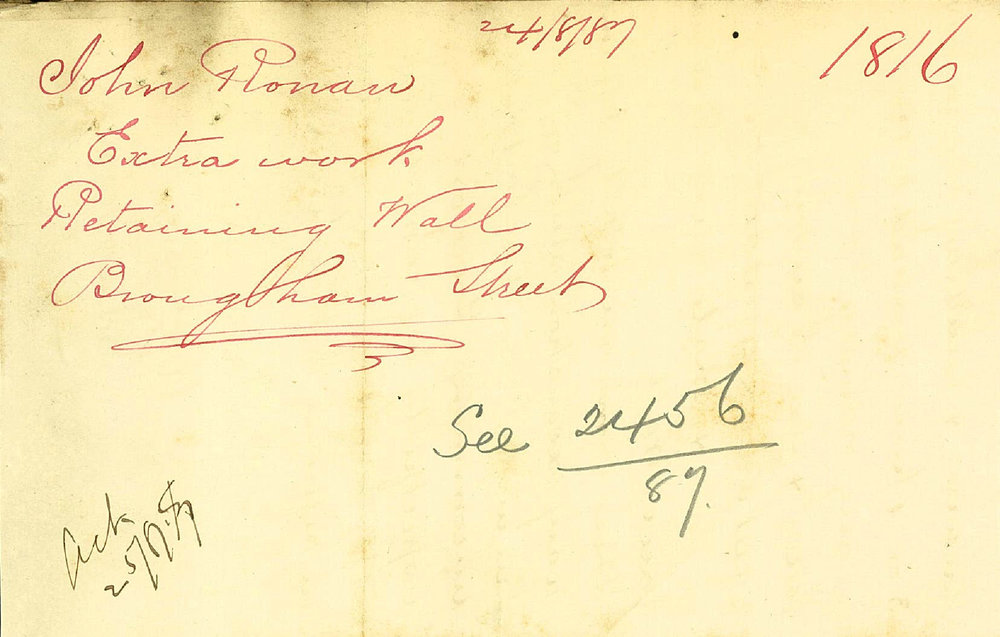 24/8/87
1816
John Ronan
Extra work
Retaining Wall
Brougham Street
See 2456
87.
Ack
25/8/87